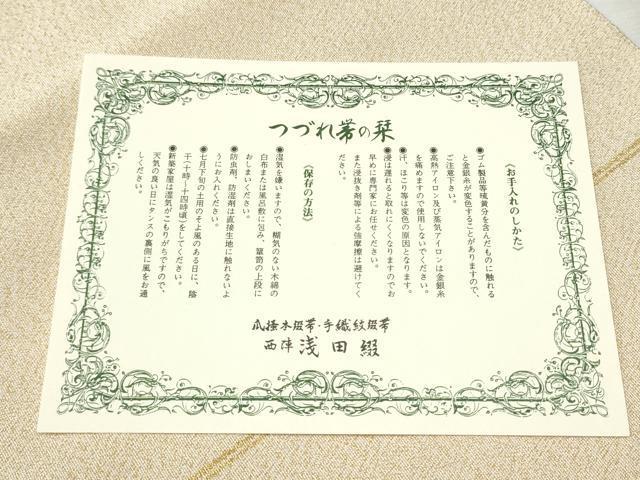 つづれ帯の栞
《お手入れのしかた》
●ゴム製品等硫黄分を含んだものに触れる
と金銀糸が変色することがありますので、
ご注意下さい。
●高熱アイロン及び蒸気アイロンは金銀糸
を痛めますので使用しないでください。
●汗、ほこり等は変色の原因となります。
●浸は遅れると取れにくくなりますのでお
早めに専門家にお任せください。
また浸抜き剤等による強摩擦は避けてく
ださい。
《保存の方法》
●湿気を嫌いますので、糊気のない木綿の
白布または風呂敷に包み、簞笥の上段に
おしまいください。
●防虫剤、防湿剤は直接生地に触れないよ
うにお入れください。
●七月下旬の土用のそよ風のある日に、陰
干(十時〜十四時頃)をしてください。
●新築家屋は湿気がこもりがちですので、
天気の良い日にタンスの裏側に風をお通
しください。
爪掻本綴帯・手織紋綴帯
西陣 浅田綴